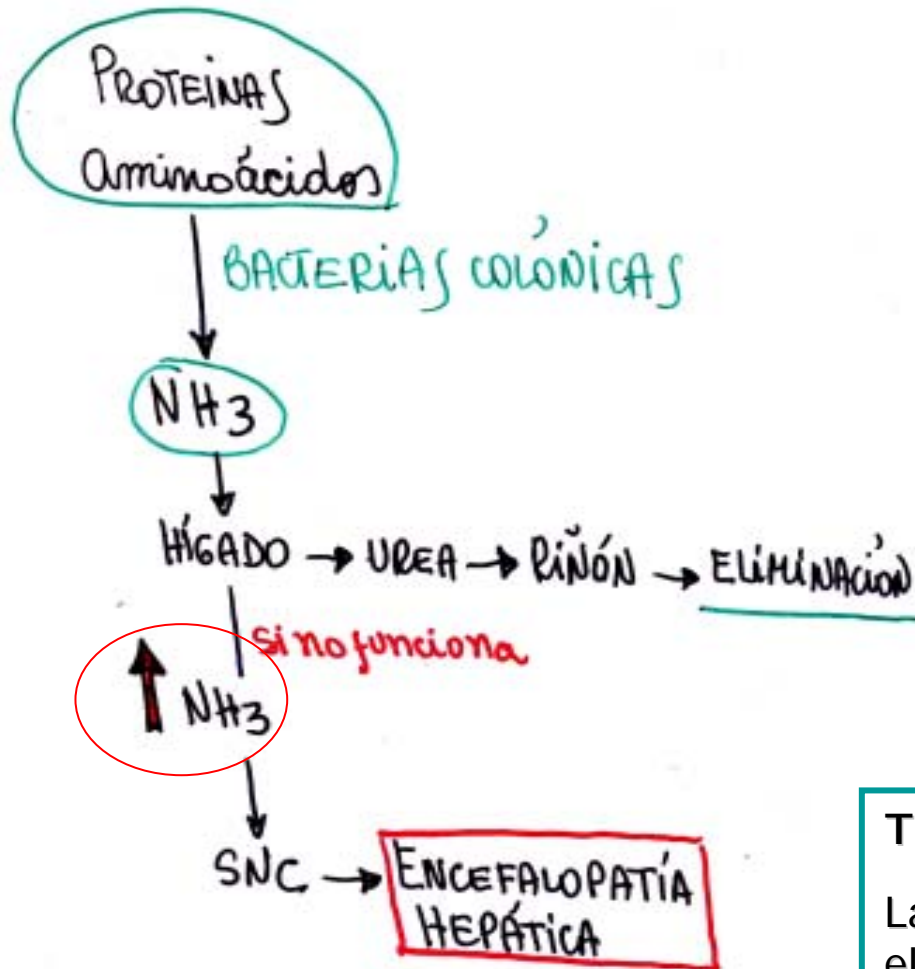 PROTEÍNAS
aminoácidos
BACTERIAS COLÓNICAS
NH3
HÍGADO → UREA → RIÑÓN → ELIMINACIÓN
si no funciona
↑ NH3
SNC → ENCEFALOPATÍA
HEPÁTICA
T
La